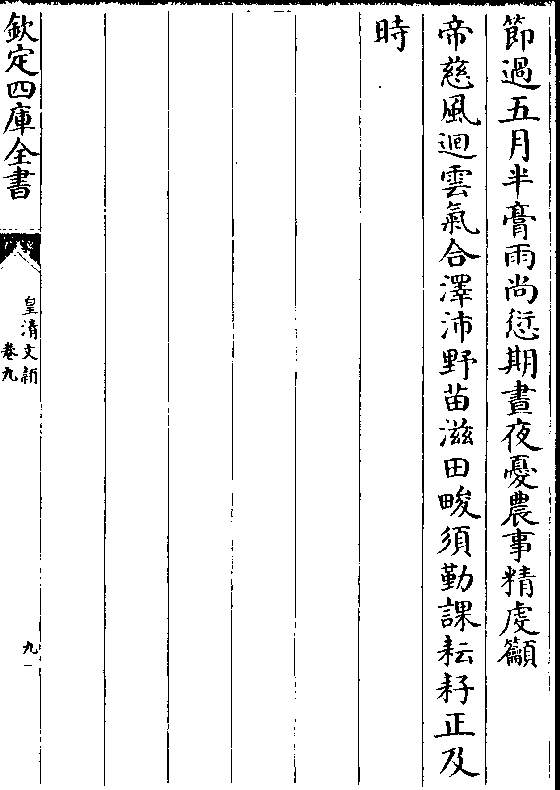 節過五月半膏雨尚愆期晝夜憂農事精虔籲
帝慈風迴雲氣合澤沛野苗滋田畯須勤課耘耔正及
時
欽定四庫全書
皇清文穎
卷九
九